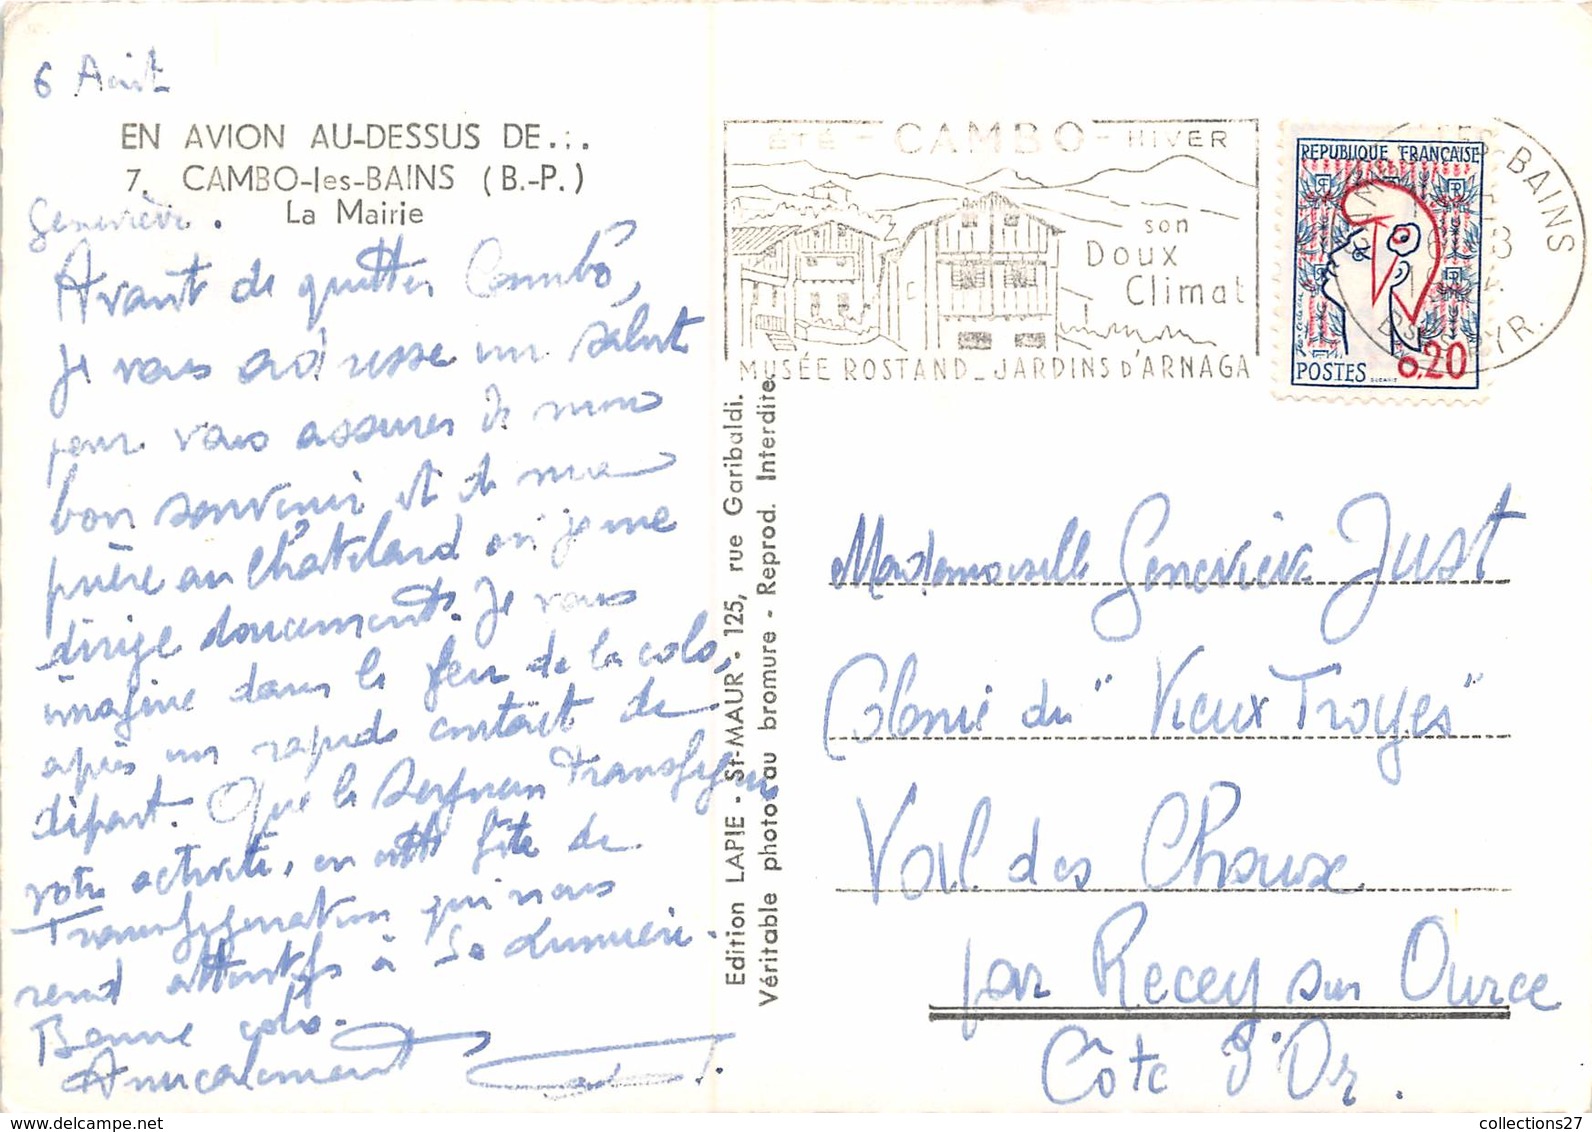 6 Août
EN AVION AU-DESSUS DE...
7. CAMBO-les-BAINS (B.-P.)
La Mairie
Geneviève.
Avant de quitter Cambo,
je vous adresse un salut
pour vous assurer de mon
bon souvenir et de ma
prière au Châtelard où je me
dirige doucement. Je vous
imagine dans le feu de la colo,
après un rapide contact de
départ. Que le Seigneur transfigure
votre activité, en cette fête de
Transfiguration qui nous
rend attentifs à Sa Lumière.
Bonne colo.
Amicalement
Edition LAPIE - St-MAUR - 125, rue Garibaldi.
Véritable photo au bromure - Reprod. Interdite.
ÉTÉ - CAMBO - HIVER
son
DOUX
CLIMAT
MUSÉE ROSTAND_JARDINS D'ARNAGA
REPUBLIQUE FRANÇAISE
0,20
POSTES
LES-BAINS
Mademoiselle Geneviève Just
Colonie du "Vieux Troyes"
Val des Choux
par Recey sur Ource
Côte d'Or.
collections27